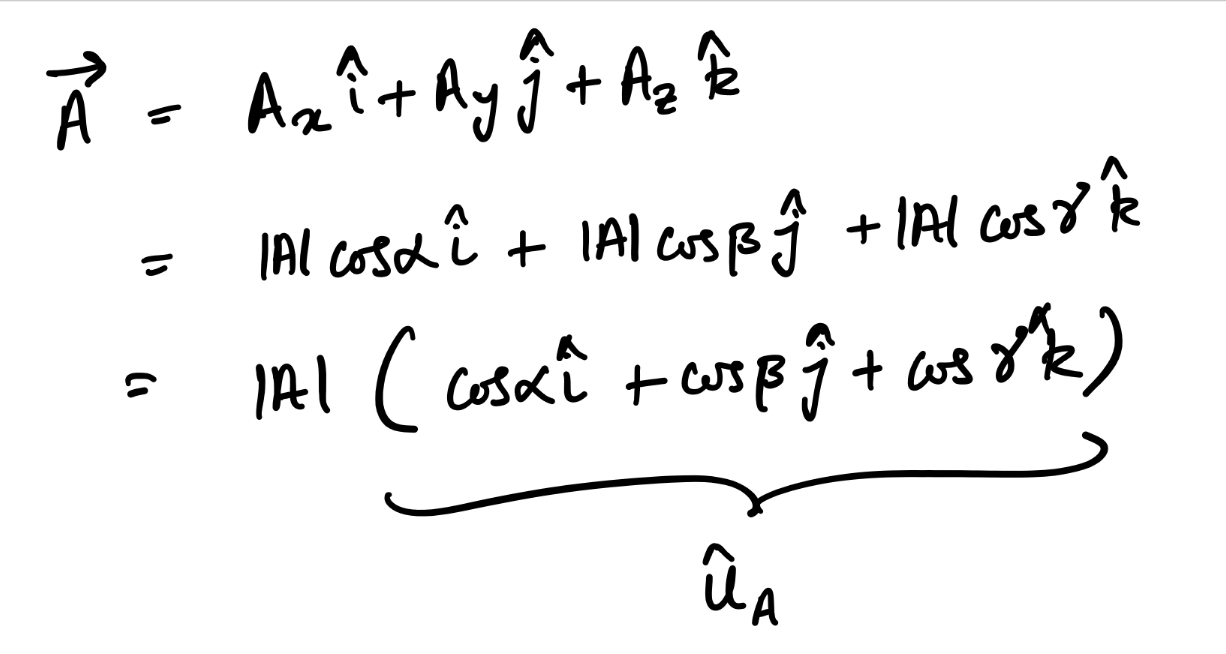 $\vec{A} = A_x \hat{i} + A_y \hat{j} + A_z \hat{k}$
$= |A| \cos\alpha \hat{i} + |A| \cos\beta \hat{j} + |A| \cos\gamma \hat{k}$
$= |A| ( \cos\alpha \hat{i} + \cos\beta \hat{j} + \cos\gamma \hat{k} )$
$\hat{u}_A$